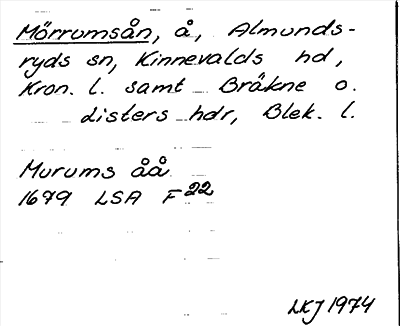 Mörrumsån, å, Almunds-
ryds sn, Kinnevalds hd,
Kron. l. samt Bräkne o.
Listers hdr, Blek. l.
Murums åå
1679 LSA F22
LKJ 1974